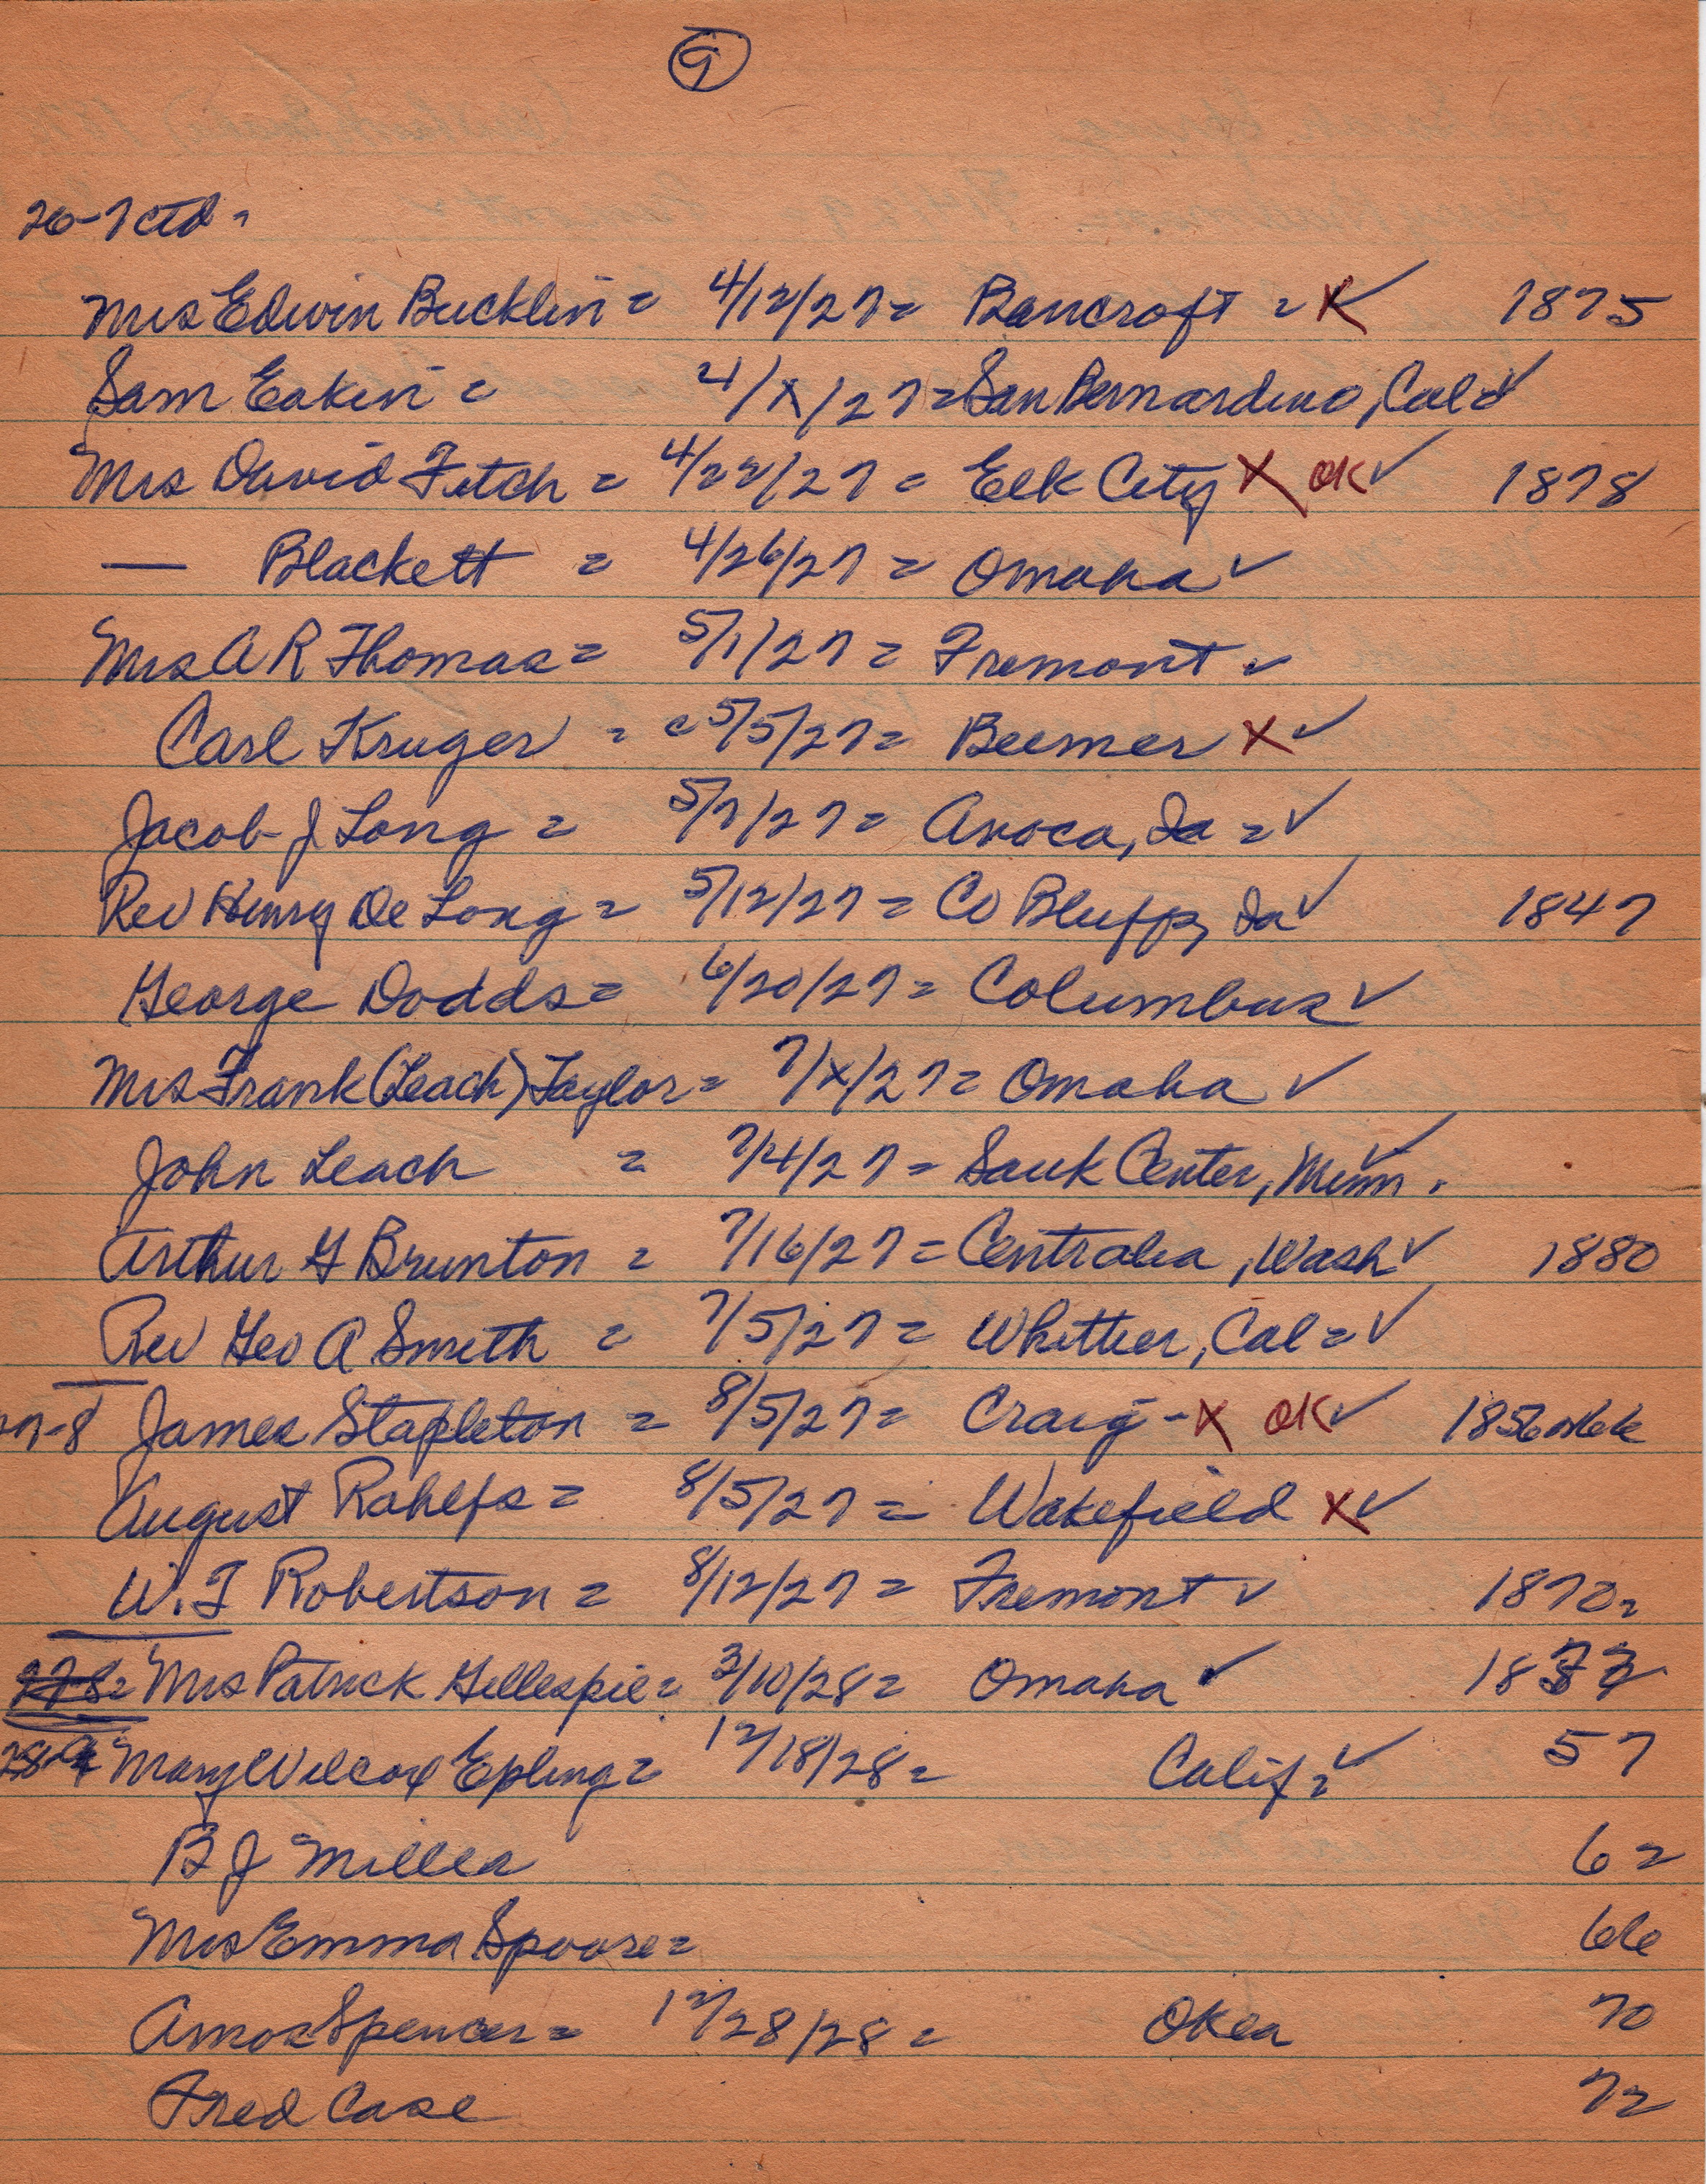 9
26-7 ctd =
Mrs Edwin Bucklin = 4/12/27 = Bancroft = X ✓ 1875
Sam Eakin = 4/x/27 = San Bernardino, Cal ✓
Mrs David Fitch = 4/22/27 = Elk City X OK ✓ 1878
— Blackett = 4/26/27 = Omaha ✓
Mrs A R Thomas = 5/1/27 = Fremont ✓
Carl Kruger = c 5/5/27 = Beemer X ✓
Jacob J Long = 5/7/27 = Avoca, Ia = ✓
Rev Henry De Long = 5/12/27 = Co Bluffs, Ia ✓ 1847
George Dodds = 6/20/27 = Columbus ✓
Mrs Frank (Leach) Taylor = 7/x/27 = Omaha ✓
John Leach = 7/4/27 = Sauk Center, Minn. ✓
Arthur G Brunton = 7/16/27 = Centralia, Wash ✓ 1880
Rev Geo A Smith = 7/5/27 = Whittier, Cal = ✓
27-8 James Stapleton = 8/5/27 = Craig - X OK ✓ 1856
August Rahlfs = 8/5/27 = Wakefield X ✓
W. F Robertson = 8/12/27 = Fremont ✓ 1870 =
27-8 = Mrs Patrick Gillespie = 3/10/28 = Omaha ✓
28-9 Mary Wilcox Epling = 12/18/28 = Calif = ✓ 57
B J Miller 62
Mrs Emma Spoore = 66
Amos Spencer = 12/28/28 = Okla 70
Fred Case 72